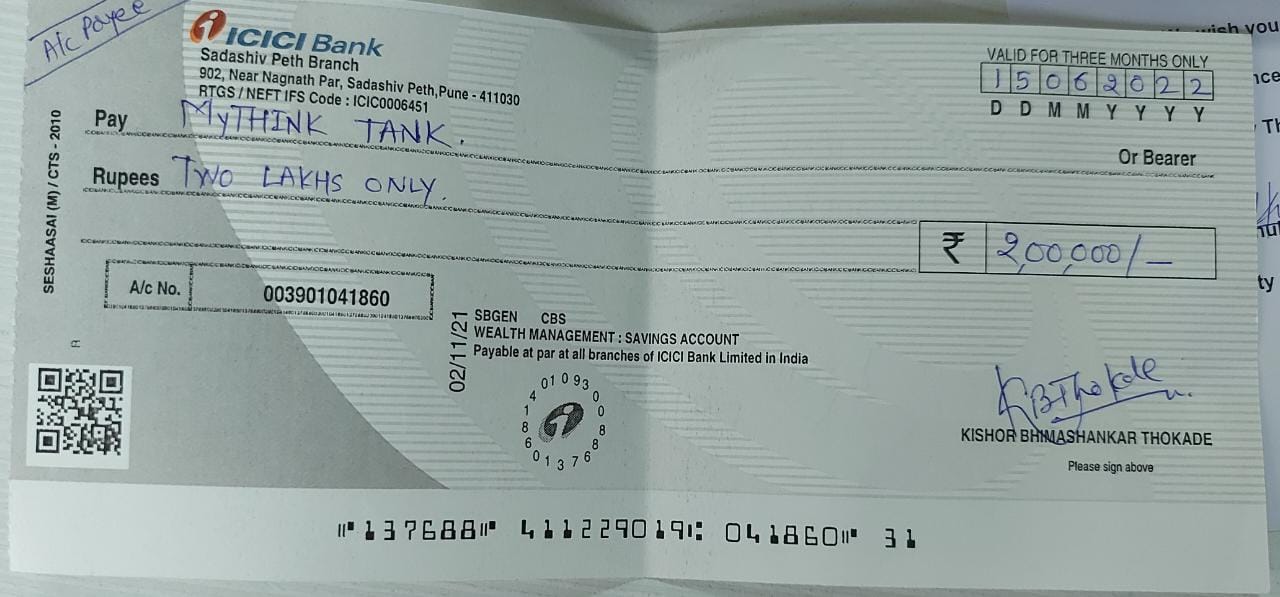 A/c Payee
ICICI Bank
Sadashiv Peth Branch
902, Near Nagnath Par, Sadashiv Peth,Pune - 411030
RTGS / NEFT IFS Code : ICIC0006451
VALID FOR THREE MONTHS ONLY
15062022
D D M M Y Y Y Y
Pay MyTHINK TANK.
Or Bearer
Rupees TWO LAKHS ONLY.
₹ 2,00,000/-
A/c No. 003901041860
SESHAASAI (M) / CTS - 2010
02/11/21
SBGEN CBS
WEALTH MANAGEMENT : SAVINGS ACCOUNT
Payable at par at all branches of ICICI Bank Limited in India
KBThokade
KISHOR BHIMASHANKAR THOKADE
Please sign above
⑈137688⑈ 411229019⑆ 041860⑈ 31
wish you